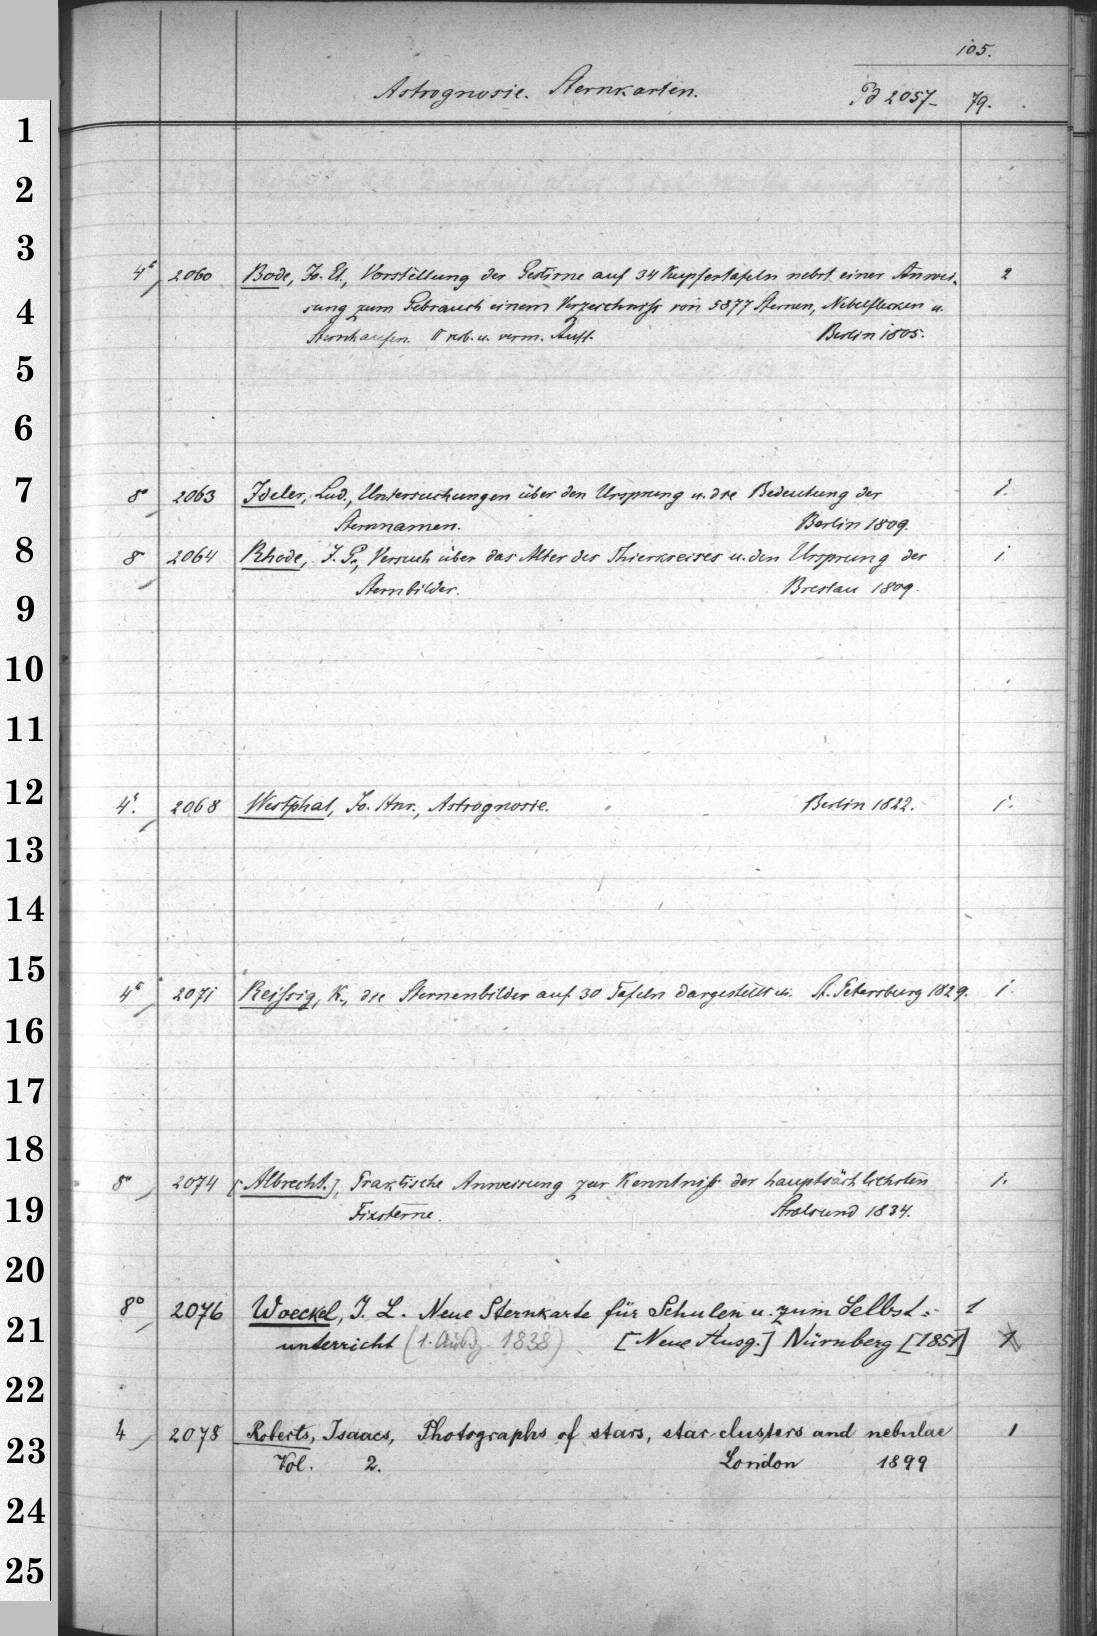 105.
Astrognosie. Sternkarten. Pd 2057- 79.
4° 2060 Bode, Jo. El., Vorstellung der Gestirne auf 34 Kupfertafeln nebst einer Anwei- 2
sung zum Gebrauch einem Verzeichniss von 5877 Sternen, Nebelflecken u.
Sternhaufen. II verb. u. verm. Aufl. Berlin 1805.
8° 2063 Ideler, Lud., Untersuchungen über den Ursprung u. die Bedeutung der 1.
Sternnamen. Berlin 1809.
8° 2064 Rhode, J. G., Versuch über das Alter des Thierkreises u. den Ursprung der 1.
Sternbilder. Breslau 1809.
4°. 2068 Westphal, Jo. Hnr., Astrognosie. Berlin 1822. 1.
4° 2071 Reissig, K., die Sternenbilder auf 30 Tafeln dargestellt. St. Petersburg 1829. 1.
8° 2074 [Albrecht.], Praktische Anweisung zur Kenntniss der hauptsächlichsten 1.
Fixsterne. Stralsund 1834.
8° 2076 Woeckel, J. L. Neue Sternkarte für Schulen u. zum Selbst= 1
unterricht (1. Ausg. 1838) [Neue Ausg.] Nürnberg [1851] 1
4 2078 Roberts, Isaacs, Photographs of stars, star-clusters and nebulae 1
Vol. 2. London 1899
1
2
3
4
5
6
7
8
9
10
11
12
13
14
15
16
17
18
19
20
21
22
23
24
25